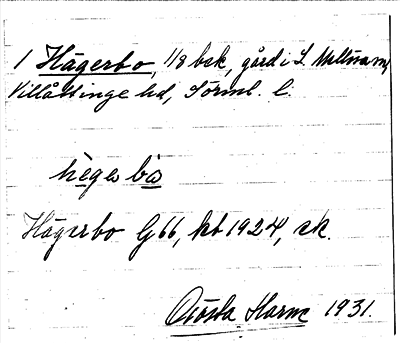 1 Hägerbo, 1/8 bsk, gård i L. Mellösa sn,
Villåttinge hd, Sörml. l.
hèges bɷ
Hägerbo G 66, kbl 1924, ek.
Gösta Harne 1931.